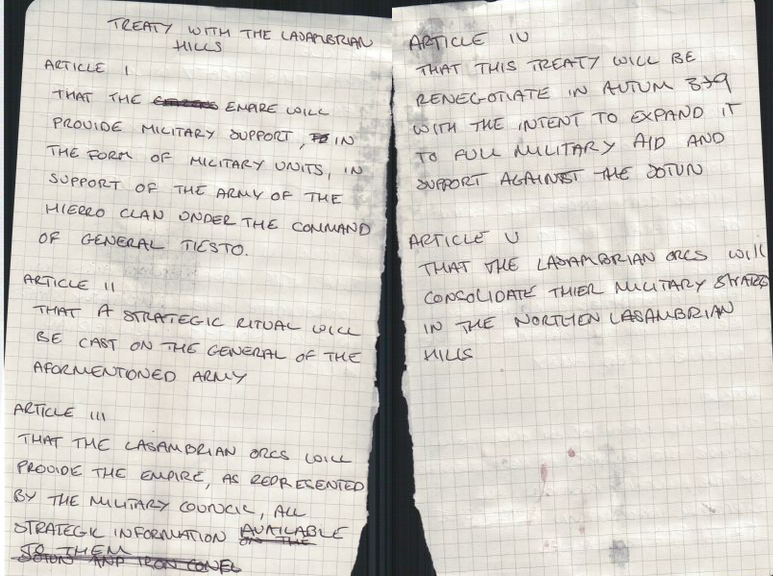 TREATY WITH THE LASAMBRIAN
HILLS
ARTICLE I
THAT THE EMPIRE WILL
PROVIDE MILITARY SUPPORT, IN
THE FORM OF MILITARY UNITS, IN
SUPPORT OF THE ARMY OF THE
HIERRO CLAN UNDER THE COMMAND
OF GENERAL TIESTO.
ARTICLE II
THAT A STRATEGIC RITUAL WILL
BE CAST ON THE GENERAL OF THE
AFORMENTIONED ARMY
ARTICLE III
THAT THE LASAMBRIAN ORCS WILL
PROVIDE THE EMPIRE, AS REPRESENTED
BY THE MILITARY COUNCIL, ALL
STRATEGIC INFORMATION AVAILABLE
ON THE
TO THEM
JOTUN AND IRON CONEL
ARTICLE IV
THAT THIS TREATY WILL BE
RENEGOTIATE IN AUTUM 379
WITH THE INTENT TO EXPAND IT
TO FULL MILITARY AID AND
SUPPORT AGAINST THE JOTUN
ARTICLE V
THAT THE LASAMBRIAN ORCS WILL
CONSOLIDATE THIER MILITARY
IN THE NORTHEN LASAMBRIAN
HILLS